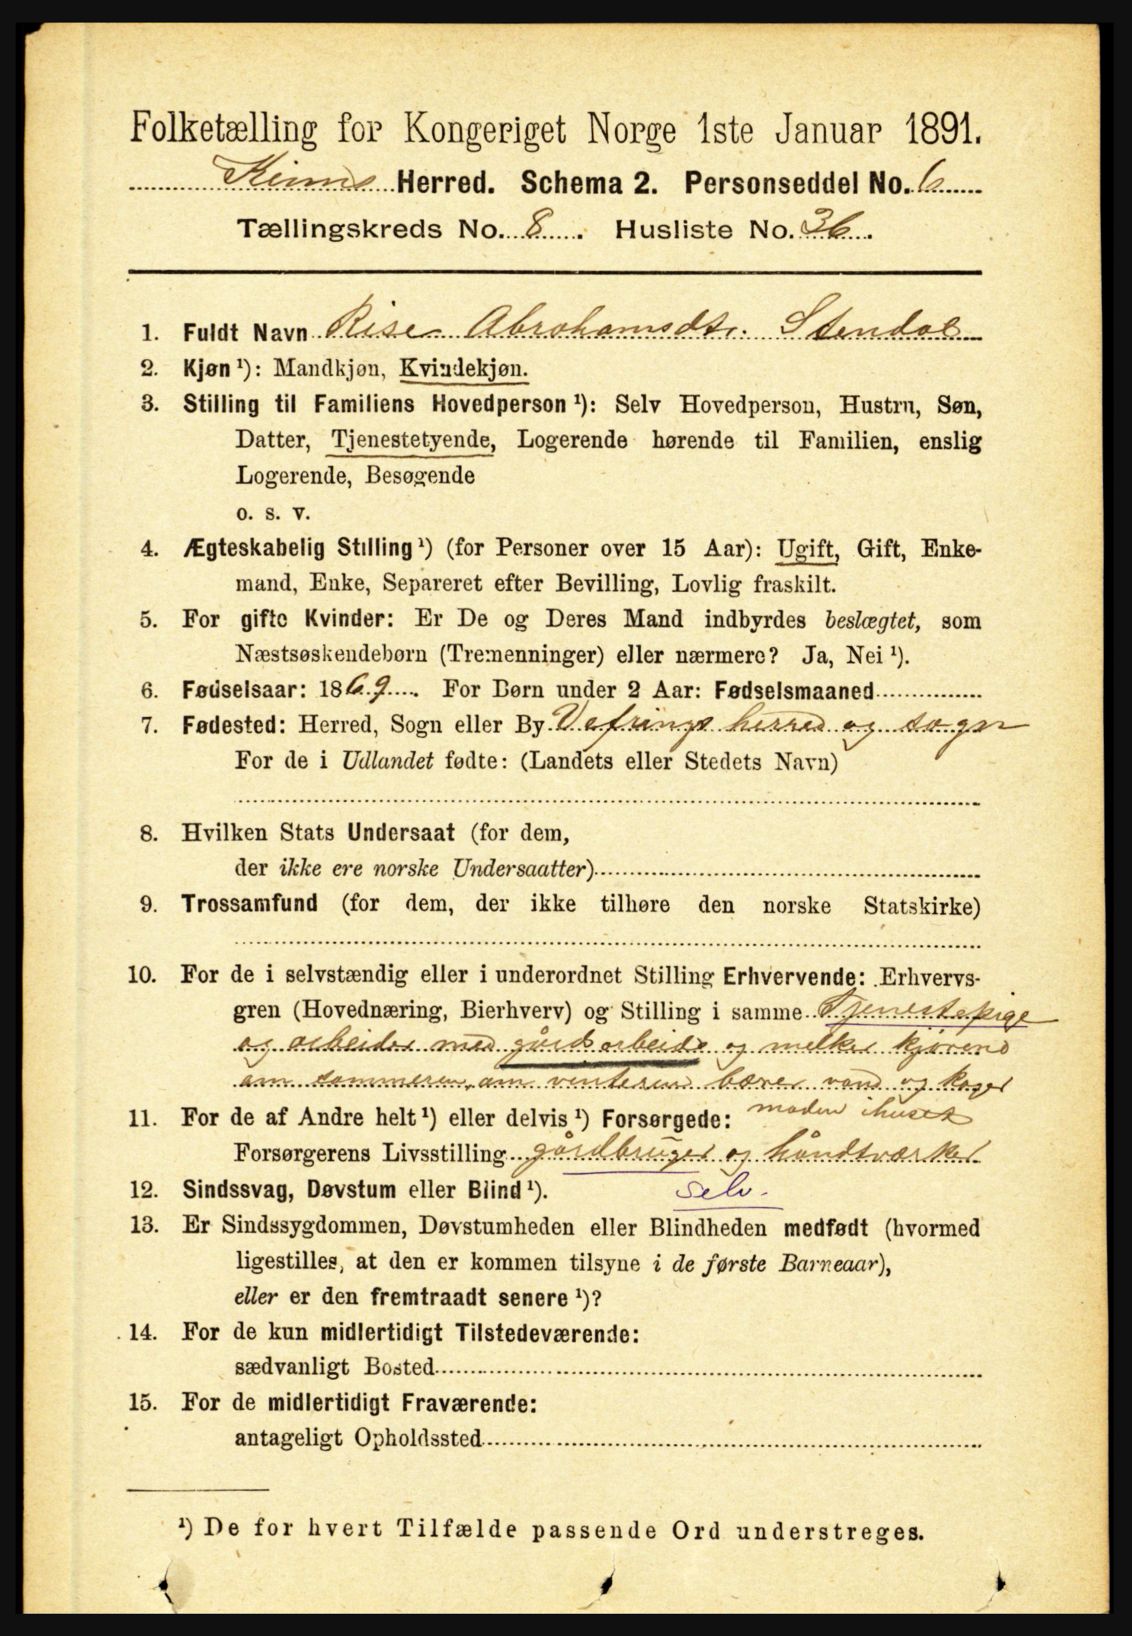 Folketælling for Kongeriget Norge 1ste Januar 1891.
Kinns Herred. Schema 2. Personseddel No. 6
Tællingskreds No. 8. Husliste No. 36.
1. Fuldt Navn Rise Abrohamsdtr. Stendal
2. Kjøn ¹): Mandkjøn, Kvindekjøn.
3. Stilling til Familiens Hovedperson ¹): Selv Hovedperson, Hustru, Søn,
Datter, Tjenestetyende, Logerende hørende til Familien, enslig
Logerende, Besøgende
o. s. v.
4. Ægteskabelig Stilling ¹) (for Personer over 15 Aar): Ugift, Gift, Enke-
mand, Enke, Separeret efter Bevilling, Lovlig fraskilt.
5. For gifte Kvinder: Er De og Deres Mand indbyrdes beslægtet, som
Næstsøskendebørn (Tremenninger) eller nærmere? Ja, Nei ¹).
6. Fødselsaar: 1869. For Børn under 2 Aar: Fødselsmaaned
7. Fødested: Herred, Sogn eller By Vefrings herred og sogn
For de i Udlandet fødte: (Landets eller Stedets Navn)
8. Hvilken Stats Undersaat (for dem,
der ikke ere norske Undersaatter)
9. Trossamfund (for dem, der ikke tilhøre den norske Statskirke)
10. For de i selvstændig eller i underordnet Stilling Erhvervende: Erhvervs-
gren (Hovednæring, Bierhverv) og Stilling i samme Tjenestepige
og arbeider med gårdsarbeide og melker kjørene
om sommeren, om vinteren bærer vand og koger
maden i huset
11. For de af Andre helt ¹) eller delvis ¹) Forsørgede:
Forsørgerens Livsstilling gårdbruger og håndtværker
12. Sindssvag, Døvstum eller Blind ¹). selv.
13. Er Sindssygdommen, Døvstumheden eller Blindheden medfødt (hvormed
ligestilles, at den er kommen tilsyne i de første Barneaar),
eller er den fremtraadt senere ¹)?
14. For de kun midlertidigt Tilstedeværende:
sædvanligt Bosted
15. For de midlertidigt Fraværende:
antageligt Opholdssted
¹) De for hvert Tilfælde passende Ord understreges.